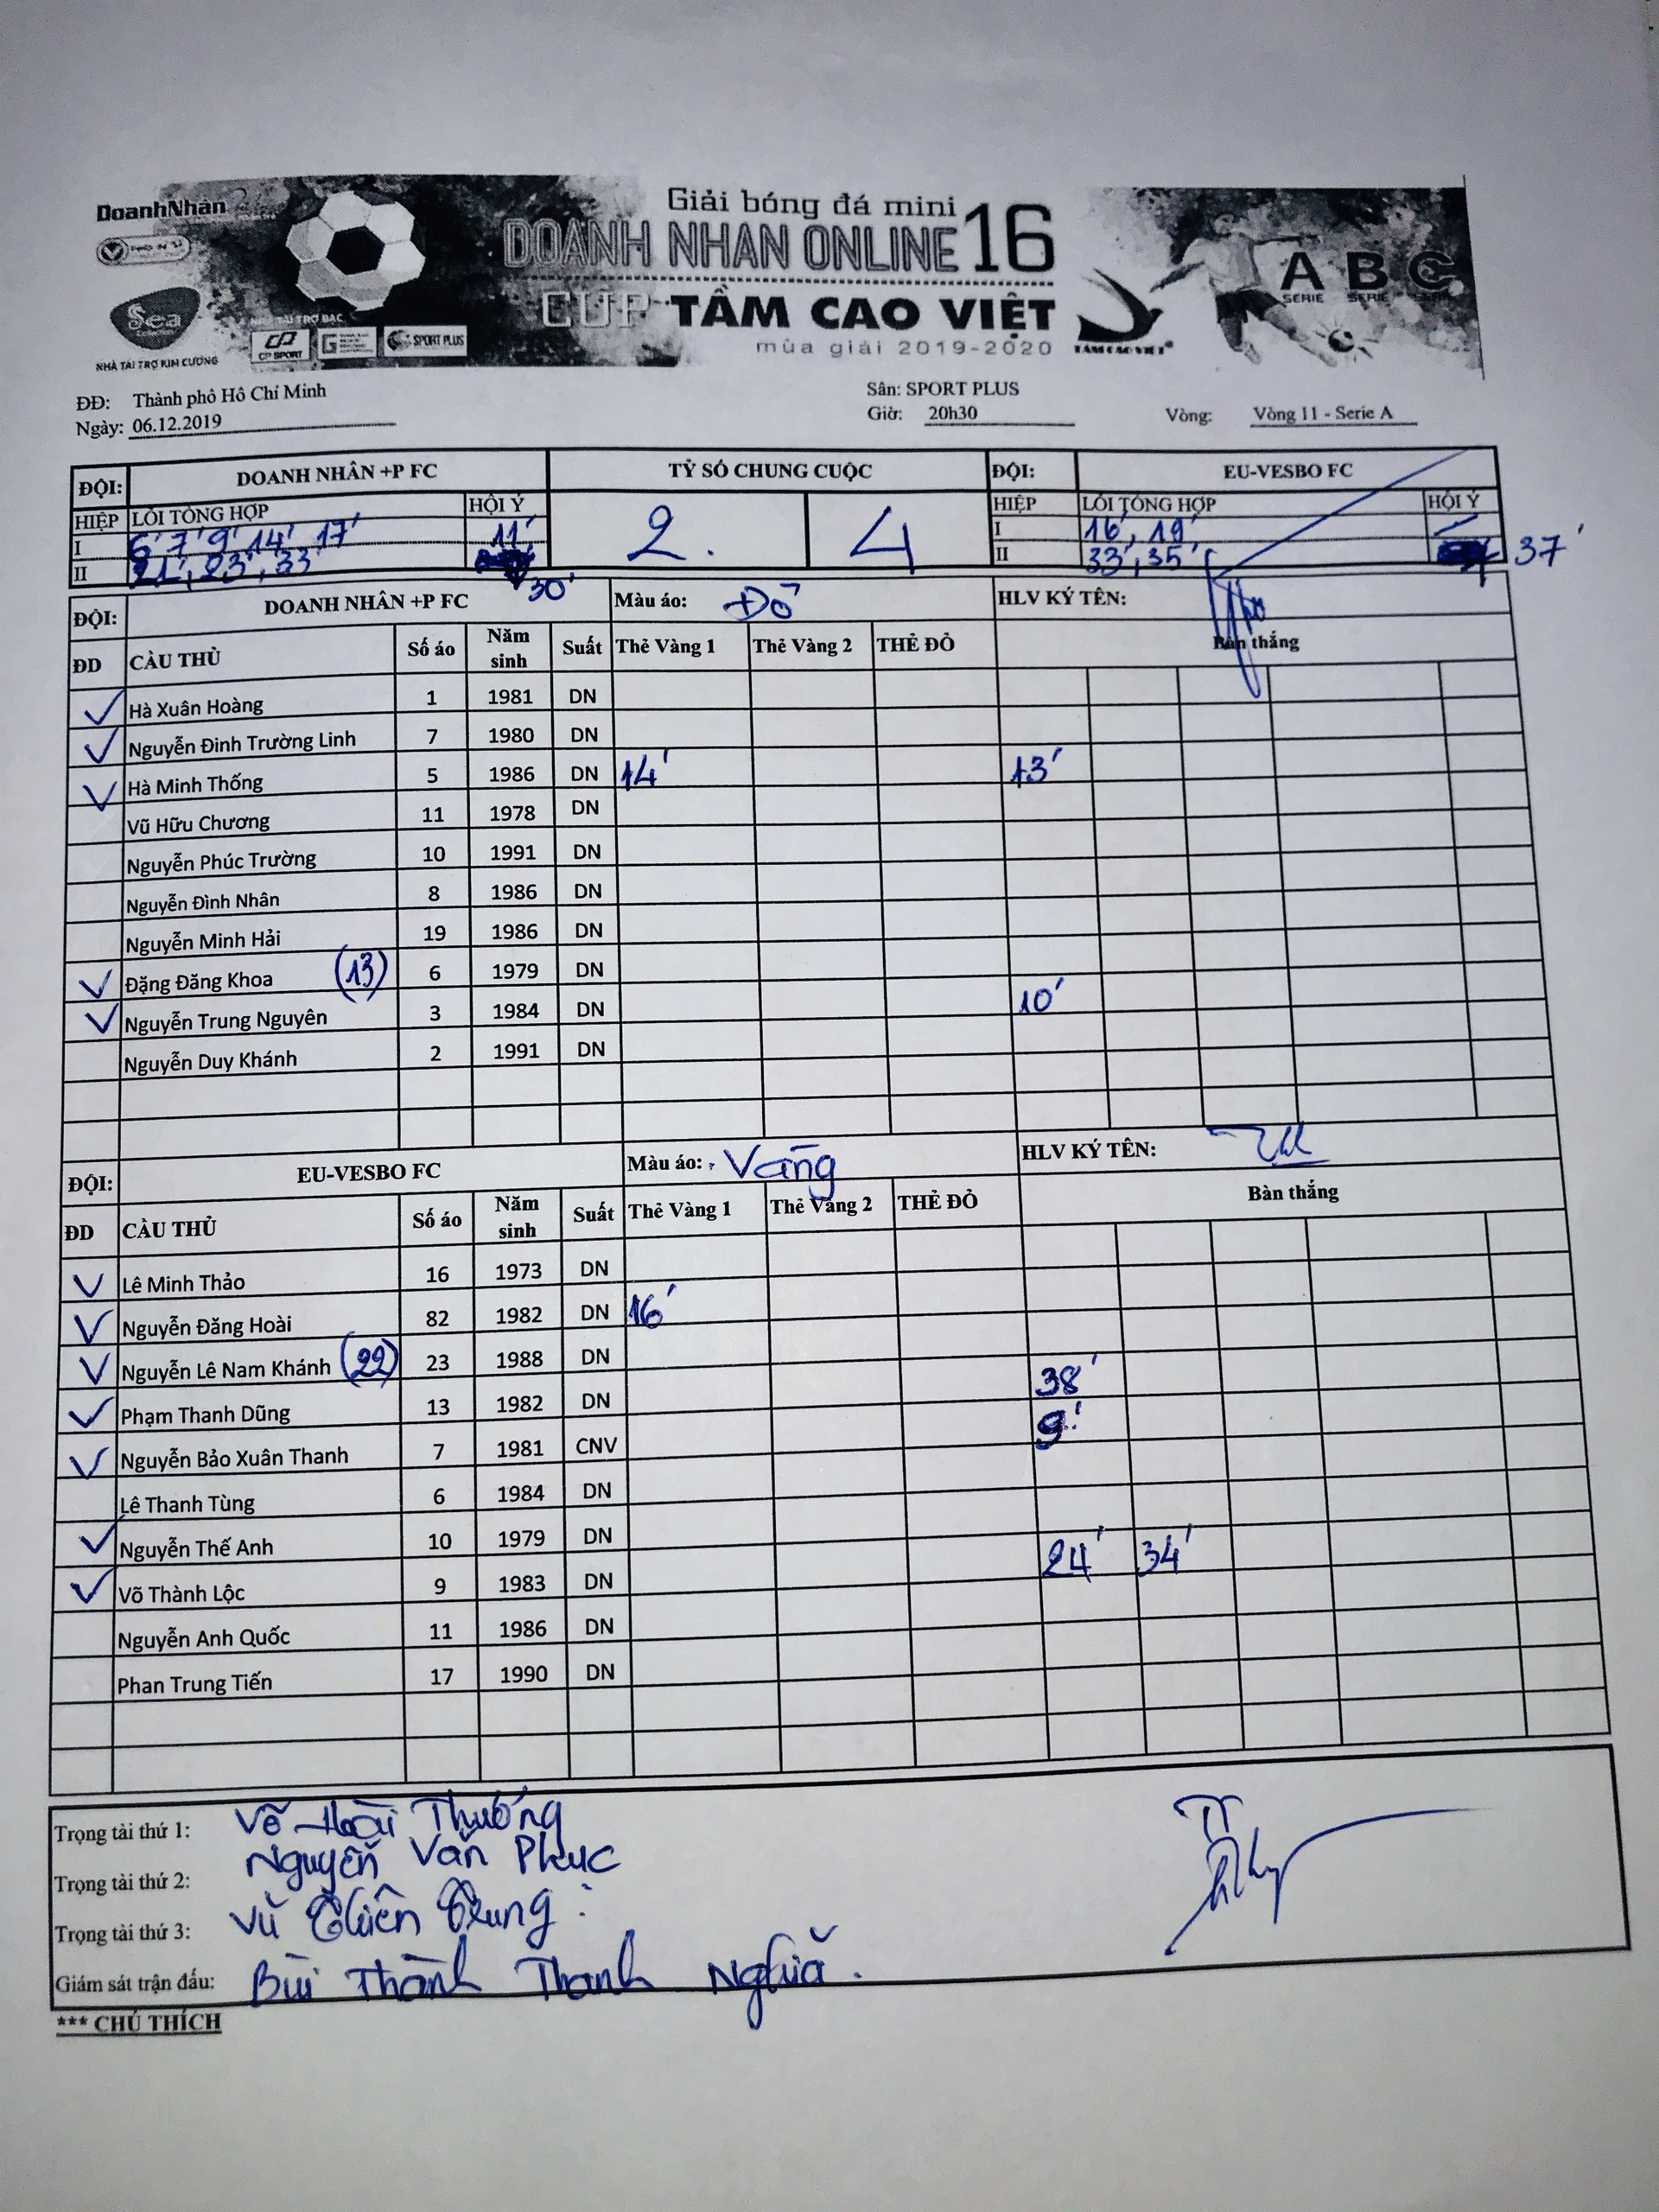 DoanhNhân
Giải bóng đá mini
DOANH NHAN ONLINE 16
CUP TẦM CAO VIỆT
mùa giải 2019-2020
Sea
NHÀ TÀI TRỢ KIM CƯƠNG
NHÀ TÀI TRỢ BẠC
CP SPORT
SPORT PLUS
TẦM CAO VIỆT
A B C
SERIE SERIE SERIE
ĐĐ: Thành phố Hồ Chí Minh Sân: SPORT PLUS
Ngày: 06.12.2019 Giờ: 20h30 Vòng: Vòng 11 - Serie A
ĐỘI: DOANH NHÂN +P FC TỶ SỐ CHUNG CUỘC ĐỘI: EU-VESBO FC
HIỆP LỖI TỔNG HỢP HỘI Ý 2. 4 HIỆP LỖI TỔNG HỢP HỘI Ý
I 6' 7' 9' 14' 17' 11' I 16', 19'
II 21', 23', 33' 30' II 33', 35' 37'
ĐỘI: DOANH NHÂN +P FC Màu áo: Đỏ HLV KÝ TÊN:
ĐD CẦU THỦ Số áo Năm sinh Suất Thẻ Vàng 1 Thẻ Vàng 2 THẺ ĐỎ Bàn thắng
✓ Hà Xuân Hoàng 1 1981 DN
✓ Nguyễn Đinh Trường Linh 7 1980 DN
✓ Hà Minh Thống 5 1986 DN 14' 13'
Vũ Hữu Chương 11 1978 DN
Nguyễn Phúc Trường 10 1991 DN
Nguyễn Đình Nhân 8 1986 DN
Nguyễn Minh Hải 19 1986 DN
✓ Đặng Đăng Khoa (13) 6 1979 DN
✓ Nguyễn Trung Nguyên 3 1984 DN 10'
Nguyễn Duy Khánh 2 1991 DN
ĐỘI: EU-VESBO FC Màu áo: Vàng HLV KÝ TÊN:
ĐD CẦU THỦ Số áo Năm sinh Suất Thẻ Vàng 1 Thẻ Vàng 2 THẺ ĐỎ Bàn thắng
✓ Lê Minh Thảo 16 1973 DN
✓ Nguyễn Đăng Hoài 82 1982 DN 16'
✓ Nguyễn Lê Nam Khánh (22) 23 1988 DN 38'
✓ Phạm Thanh Dũng 13 1982 DN 9'
✓ Nguyễn Bảo Xuân Thanh 7 1981 CNV
Lê Thanh Tùng 6 1984 DN
✓ Nguyễn Thế Anh 10 1979 DN 24' 34'
✓ Võ Thành Lộc 9 1983 DN
Nguyễn Anh Quốc 11 1986 DN
Phan Trung Tiến 17 1990 DN
Trọng tài thứ 1: Võ Hoài Thương
Trọng tài thứ 2: Nguyễn Văn Phuc
Trọng tài thứ 3: Vũ Thiên Trung
Giám sát trận đấu: Bùi Thành Thanh Nghĩa.
*** CHÚ THÍCH